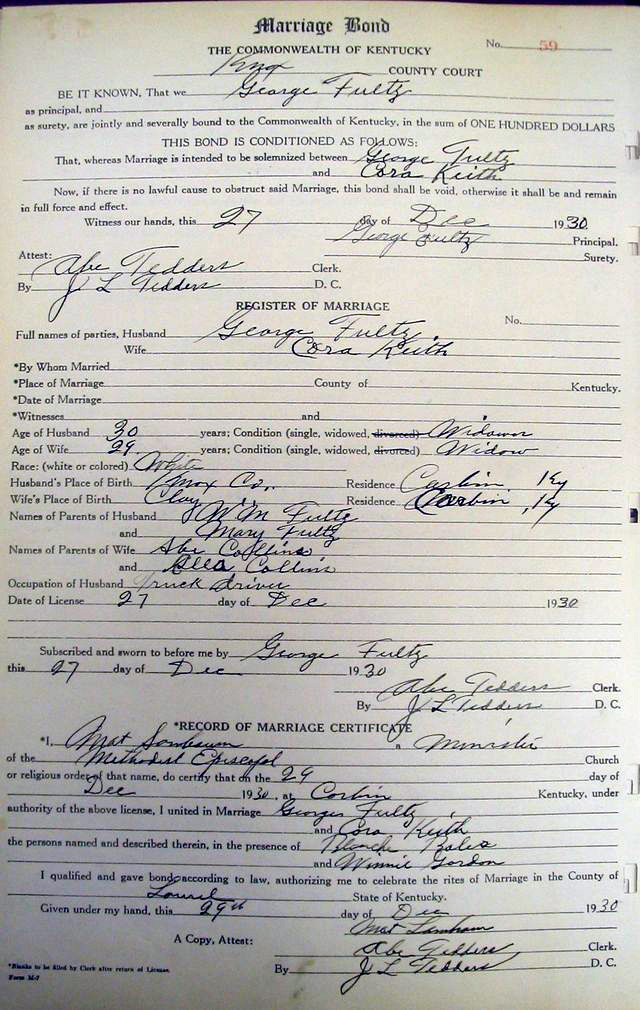 Marriage Bond
No. 59
THE COMMONWEALTH OF KENTUCKY
Knox COUNTY COURT
BE IT KNOWN, That we George Fultz
as principal, and
as surety, are jointly and severally bound to the Commonwealth of Kentucky, in the sum of ONE HUNDRED DOLLARS
THIS BOND IS CONDITIONED AS FOLLOWS:
That, whereas Marriage is intended to be solemnized between George Fultz
and Cora Keith
Now, if there is no lawful cause to obstruct said Marriage, this bond shall be void, otherwise it shall be and remain
in full force and effect.
Witness our hands, this 27 day of Dec 1930
George Fultz Principal.
Surety.
Attest:
Abe Tedders Clerk.
By J L Tedders D. C.
REGISTER OF MARRIAGE
No.
Full names of parties, Husband George Fultz
Wife Cora Keith
*By Whom Married
*Place of Marriage County of Kentucky.
*Date of Marriage
*Witnesses and
Age of Husband 30 years; Condition (single, widowed, divorced) Widower
Age of Wife 29 years; Condition (single, widowed, divorced) Widow
Race: (white or colored) White
Husband's Place of Birth Knox Co. Residence Corbin, Ky
Wife's Place of Birth Clay Residence Corbin, Ky
Names of Parents of Husband Wm Fultz
and Mary Fultz
Names of Parents of Wife Abe Collins
and Collins
Occupation of Husband Truck driver
Date of License 27 day of Dec 1930
Subscribed and sworn to before me by George Fultz
this 27 day of Dec 1930
Abe Tedders Clerk.
By J L Tedders D. C.
*RECORD OF MARRIAGE CERTIFICATE
*I, Mat a Minister
of the Methodist Episcopal Church
or religious order of that name, do certify that on the 29 day of
Dec 1930, at Corbin Kentucky, under
authority of the above license, I united in Marriage George Fultz
and Cora Keith
the persons named and described therein, in the presence of Blanche Bales
and Winnie Gordon
I qualified and gave bond, according to law, authorizing me to celebrate the rites of Marriage in the County of
Laurel State of Kentucky.
Given under my hand, this 29th day of Dec 1930
Mat
A Copy, Attest: Abe Tedders Clerk.
By J L Tedders D. C.
*Blanks to be filled by Clerk after return of License.
Form M-7